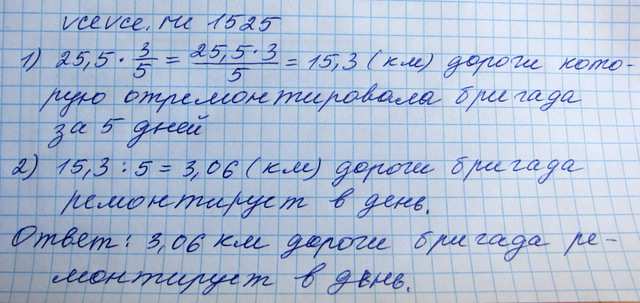 vcevce.ru 1525
1) 25,5 · 3/5 = 25,5·3/5 = 15,3 (км) дороги кото-
рую отремонтировала бригада
за 5 дней
2) 15,3 : 5 = 3,06 (км) дороги бригада
ремонтирует в день.
Ответ: 3,06 км дороги бригада ре-
монтирует в день.